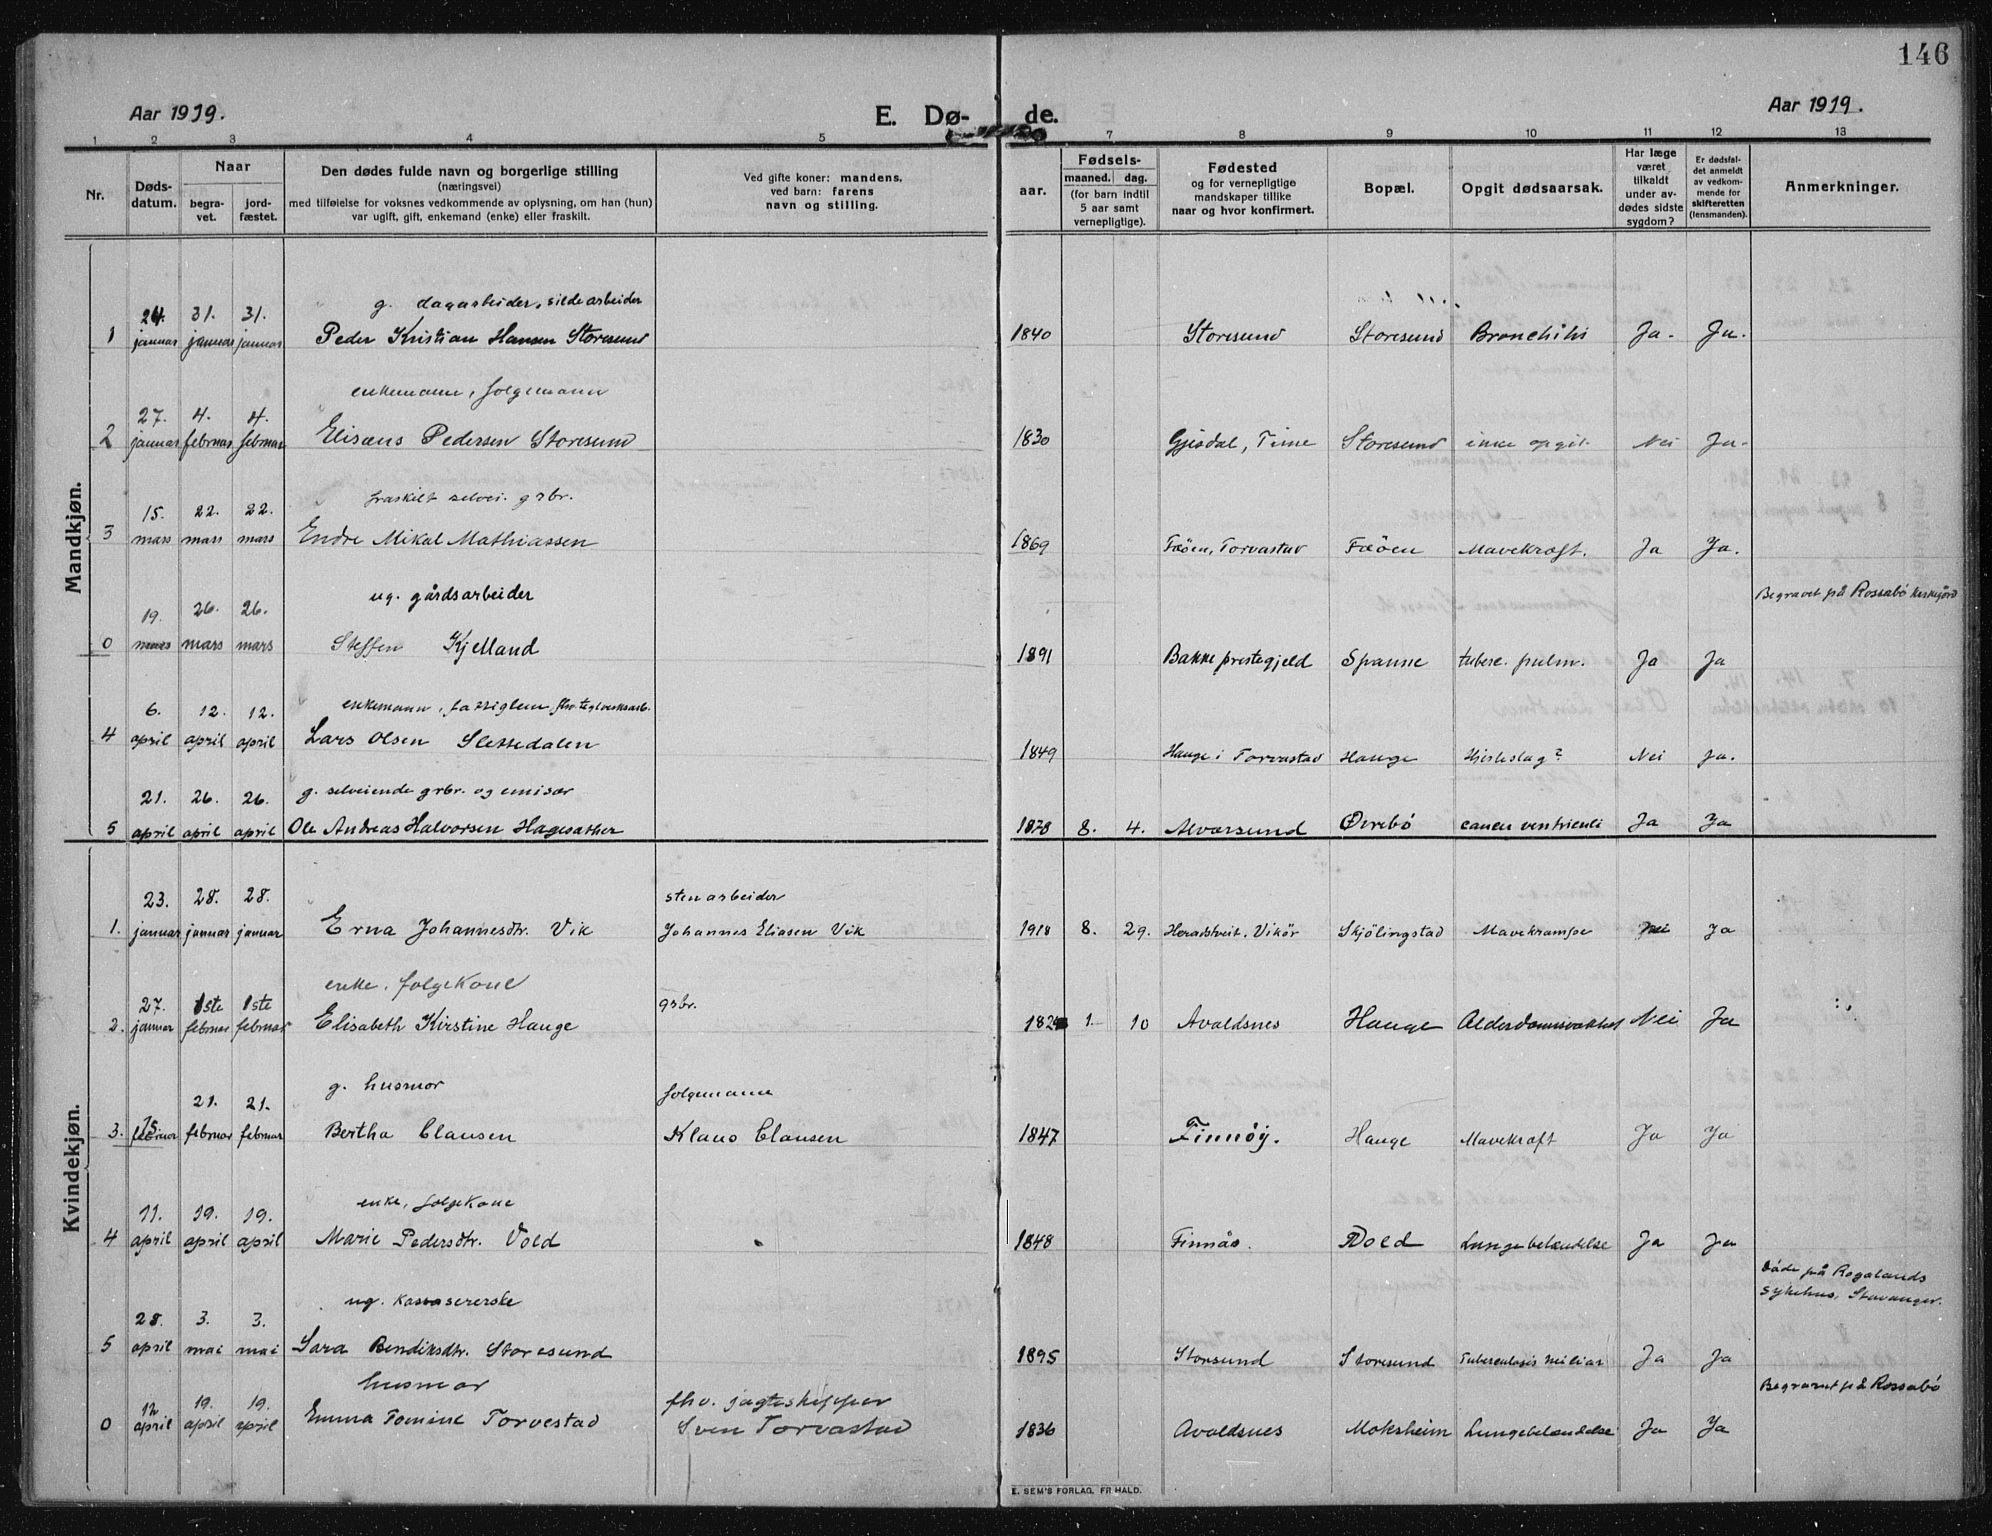 146
Aar 1919.
E. Dø-
de.
Aar 1919.
1 2 3 4 5 7 8 9 10 11 12 13
Nr.
Døds-
datum.
Naar
begra-
vet.
jord-
fæstet.
Den dødes fulde navn og borgerlige stilling
(næringsvei)
med tilføielse for voksnes vedkommende av oplysning, om han (hun)
var ugift, gift, enkemand (enke) eller fraskilt.
Ved gifte koner: mandens,
ved barn: farens
navn og stilling.
aar.
Fødsels-
maaned. dag.
(for barn indtil
5 aar samt
vernepligtige).
Fødested
og for vernepligtige
mandskaper tillike
naar og hvor konfirmert.
Bopæl.
Opgit dødsaarsak.
Har læge
været
tilkaldt
under av-
dødes sidste
sygdom?
Er dødsfal-
det anmeldt
av vedkom-
mende for
skifteretten
(lensmanden).
Anmerkninger.
Mandkjøn.
24. 31. 31. g. dagarbeider, sildearbeider
1 januar januar januar Peder Kristian Hansen Storesund 1840 Storesund Storesund Bronchitis Ja. Ja.
27. 4. 4. enkemann, folgemann
2 januar februar februar Elisæus Pedersen Storesund 1830 Gjesdal, Time Storesund ikke opgit. Nei Ja.
15. 22. 22. fraskilt selvei. grbr.
3 mars mars mars Endre Mikal Mathiassen 1869 Fæøen, Torvastad Fæøen Mavekræft. Ja Ja.
19. 26. 26. ug. gårdsarbeider Begravet på Rossabø kirkegård
0 mars mars mars Steffen Kjelland 1891 Bakke prestegjeld Spanne tuberc. pulm. Ja Ja
6. 12. 12. enkemann, fattiglem, fhv. teglverksarb.
4 april april april Lars Olsen Slettedalen 1849 Hauge i Torvastad Hauge Hjerteslag? Nei Ja.
21. 26. 26. g. selveiende grbr. og emisær
5 april april april Ole Andreas Halvorsen Hagesæther 1878 8. 4. Alversund Øvrebø cancer ventriculi Ja Ja
Kvindekjøn.
23. 28. 28. stenarbeider
1. januar januar januar Erna Johannesdtr. Vik Johannes Eliasen Vik 1918 8. 29. Heradstveit, Vikør Skjölingstad Mavekrampe Nei Ja
27. 1ste 1ste enke, folgekone grbr.
2. januar februar februar Elisabeth Kirstine Hauge 1824 1. 10 Avaldsnes Hauge Alderdomssvakhet Nei Ja
15. 21. 21. g. husmor folgemann
3. februar februar februar Bertha Clausen Klaus Clausen 1847 Finnöy. Hauge Mavekræft Ja Ja
11. 19. 19. enke, folgekone
4 april april april Marie Pedersdtr. Vold 1848 Finnås. Vold Lungebetændelse Ja Ja
Døde på Rogalands
sykehus, Stavanger.
28. 3. 3. ug. kassererske
5 april mai mai Sara Bendiksdtr. Storesund 1895 Storsund Storesund Tuberculosis miliar Ja Ja
Begravet på Rossabø
12 19. 19. husmor fhv. jagteskipper
0 april april april Emma Tomine Torvestad Sven Torvastad 1836 Avaldsnes Moksheim Lungebetændelse Ja Ja
E. SEM'S FORLAG, FR HALD.